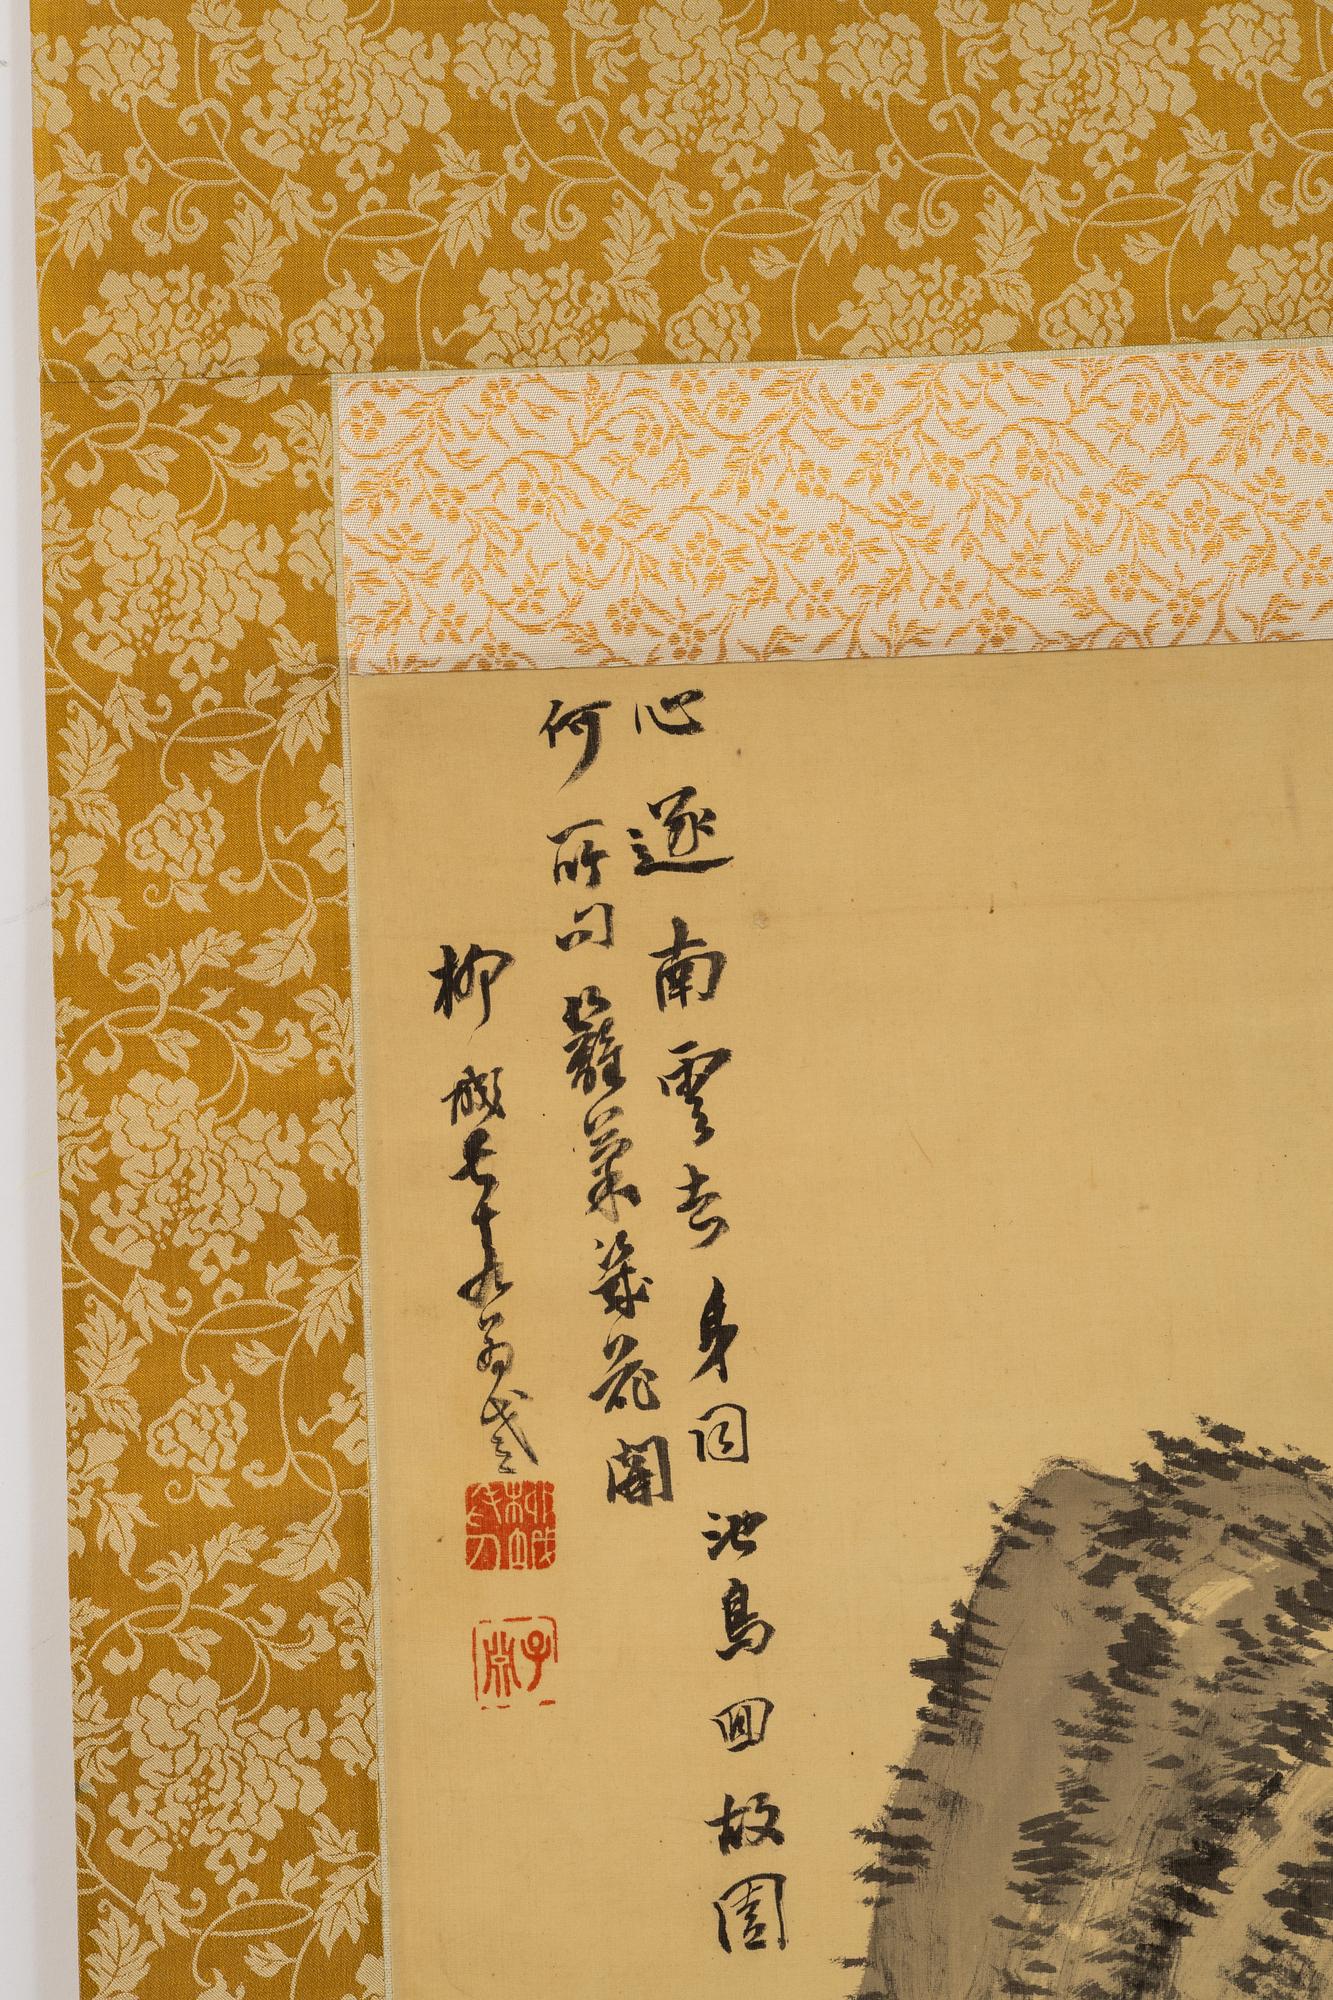 心遂南雲去身同池鳥囬故園
何所問籬菊幾花開
柳城七十九翁